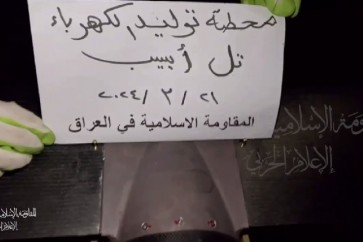 محطة توليد الكهرباء
تل أبيب
٢٠٢٤/٣/٢١
المقاومة الاسلامية في العراق
المقاومة الإسلامية
الإعلام الحربي
المقاومة الإسلامية